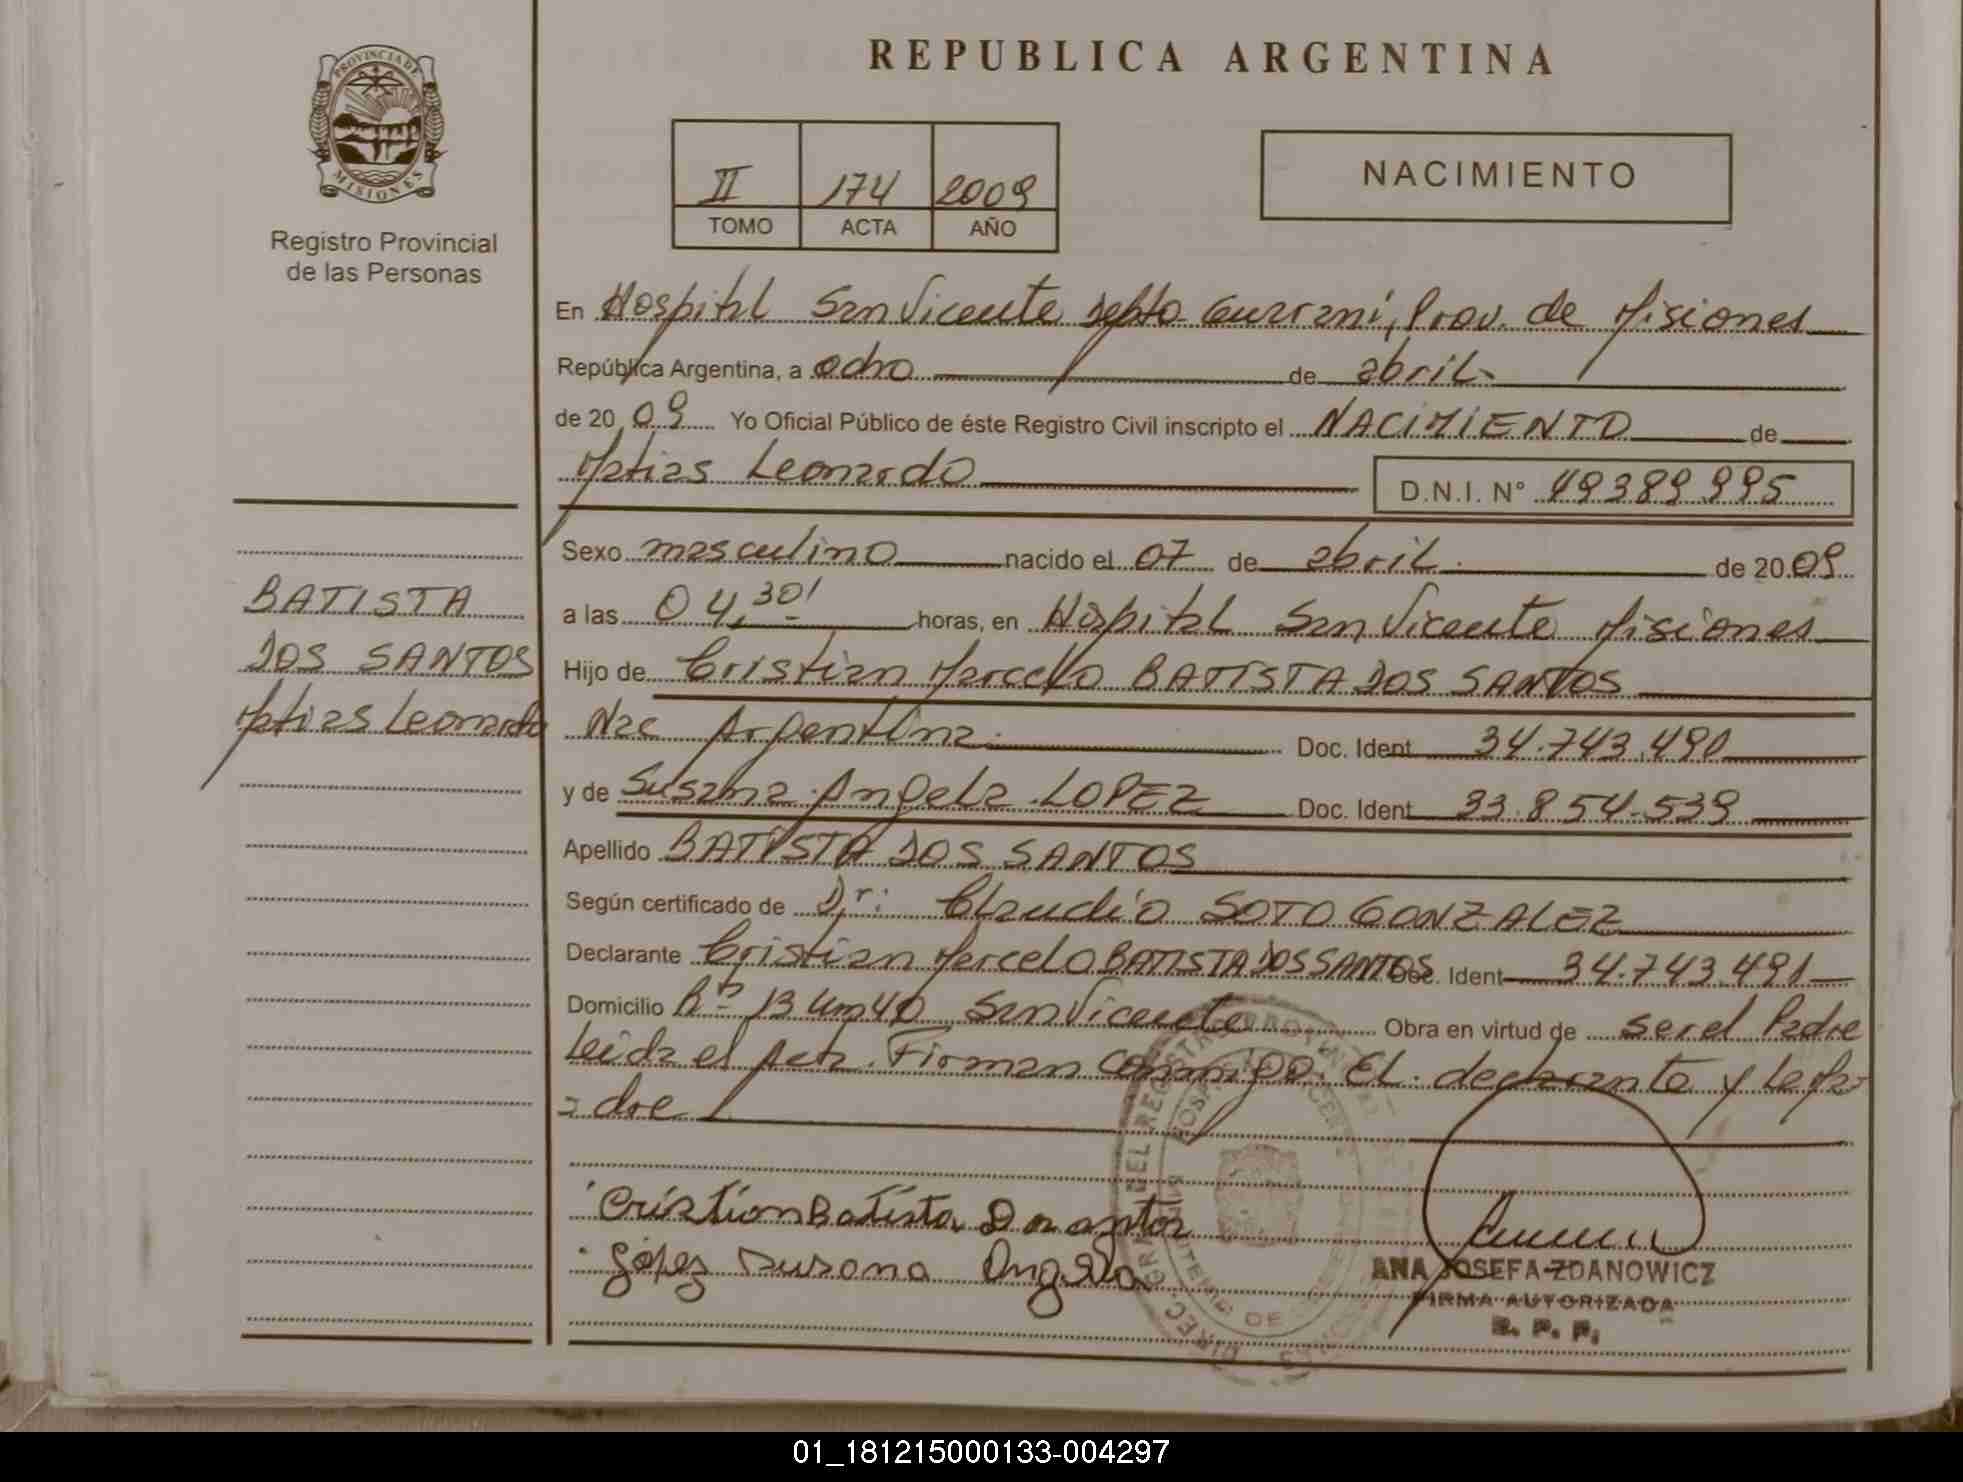 PROVINCIA DE
MISIONES
Registro Provincial
de las Personas
BATISTA
DOS SANTOS
Matias Leonardo
REPUBLICA ARGENTINA
II 174 2009
TOMO ACTA AÑO
NACIMIENTO
En Hospital San Vicente Depto Guarani, Prov. de Misiones
República Argentina, a ocho de abril.
de 20 09 Yo Oficial Público de éste Registro Civil inscripto el NACIMIENTO de
Matias Leonardo D.N.I. N° 49389995
Sexo masculino nacido el 07 de abril. de 20 09
a las 04,30' horas, en Hospital San Vicente Misiones
Hijo de Cristian Marcelo BATISTA DOS SANTOS
Nac Argentina. Doc. Ident 34.743.490
y de Susana Angela LOPEZ Doc. Ident 33.854.539
Apellido BATISTA DOS SANTOS
Según certificado de Dr: Claudio SOTO GONZALEZ
Declarante Cristian Marcelo BATISTA DOS SANTOS Doc. Ident 34.743.491
Domicilio Rta 13 km 40 San Vicente Obra en virtud de ser el Padre
Leida el Acta. Firman conmigo. El declarante y la Ma-
dre
Cristian Batista
López Susana Angela
ANA JOSEFA ZDANOWICZ
FIRMA AUTORIZADA
R. P. P.
01_181215000133-004297